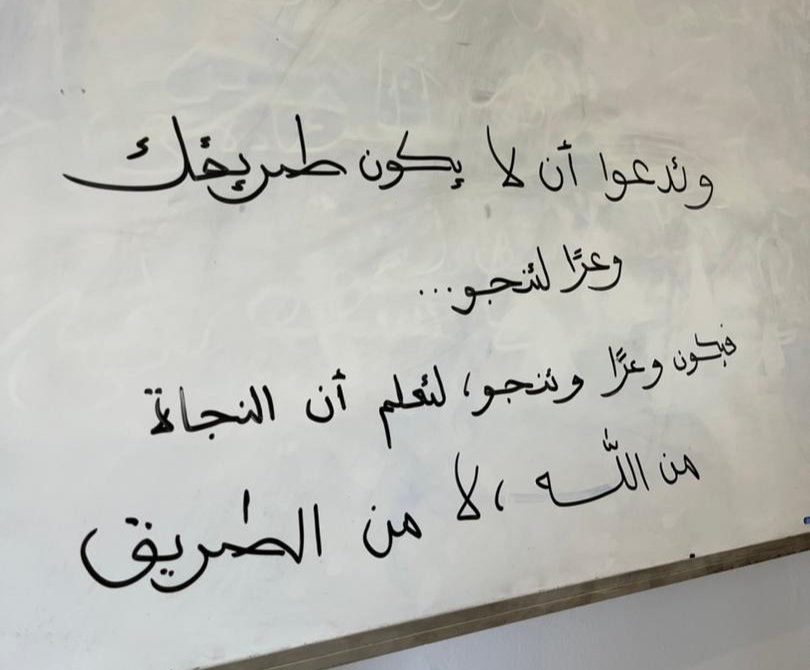 وتدعوا أن لا يكون طريقك
وعرًا لتنجو...
فيكون وعرًا وتنجو، لتعلم أن النجاة
من اللّه ،لا من الطريق